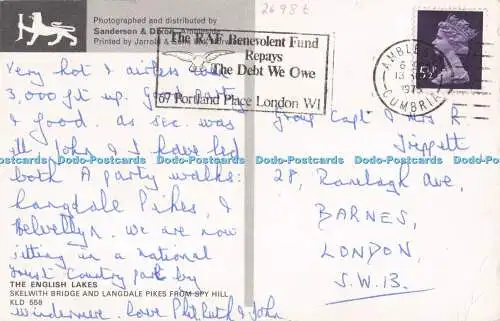 Photographed and distributed by
Sanderson & Dixon, Ambleside
Printed by Jarrold & Sons Ltd, Norwich
2698t
The RAF Benevolent Fund
Repays
The Debt We Owe
67 Portland Place London W1
AMBLESIDE
13
197
CUMBRIA
5½P
Very hot & airless
3,000 ft up. Good party
& good as sec. was
ill John & I have led
both A party walks:
Langdale Pikes, &
Helvellyn. We are now
sitting in a national
trust country park by
Windermere. Love Phil, Ruth & John
Group Capt & Mrs R
Trippett
28, Ranelagh Ave,
BARNES,
LONDON,
S.W.13.
THE ENGLISH LAKES
SKELWITH BRIDGE AND LANGDALE PIKES FROM SPY HILL
KLD 558
Dodo-Postcards Dodo-Postcards Dodo-Postcards Dodo-Postcards Dodo-Postcards